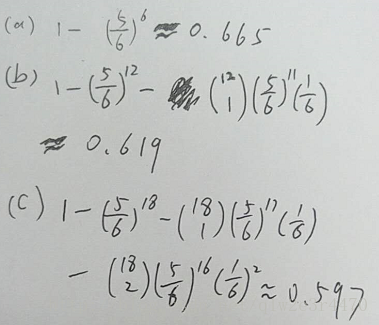 (a) 1 - (5/6)^6 ≈ 0.665
(b) 1 - (5/6)^12 - (12 1)(5/6)^11(1/6)
≈ 0.619
(c) 1 - (5/6)^18 - (18 1)(5/6)^17(1/6)
- (18 2)(5/6)^16(1/6)^2 ≈ 0.597